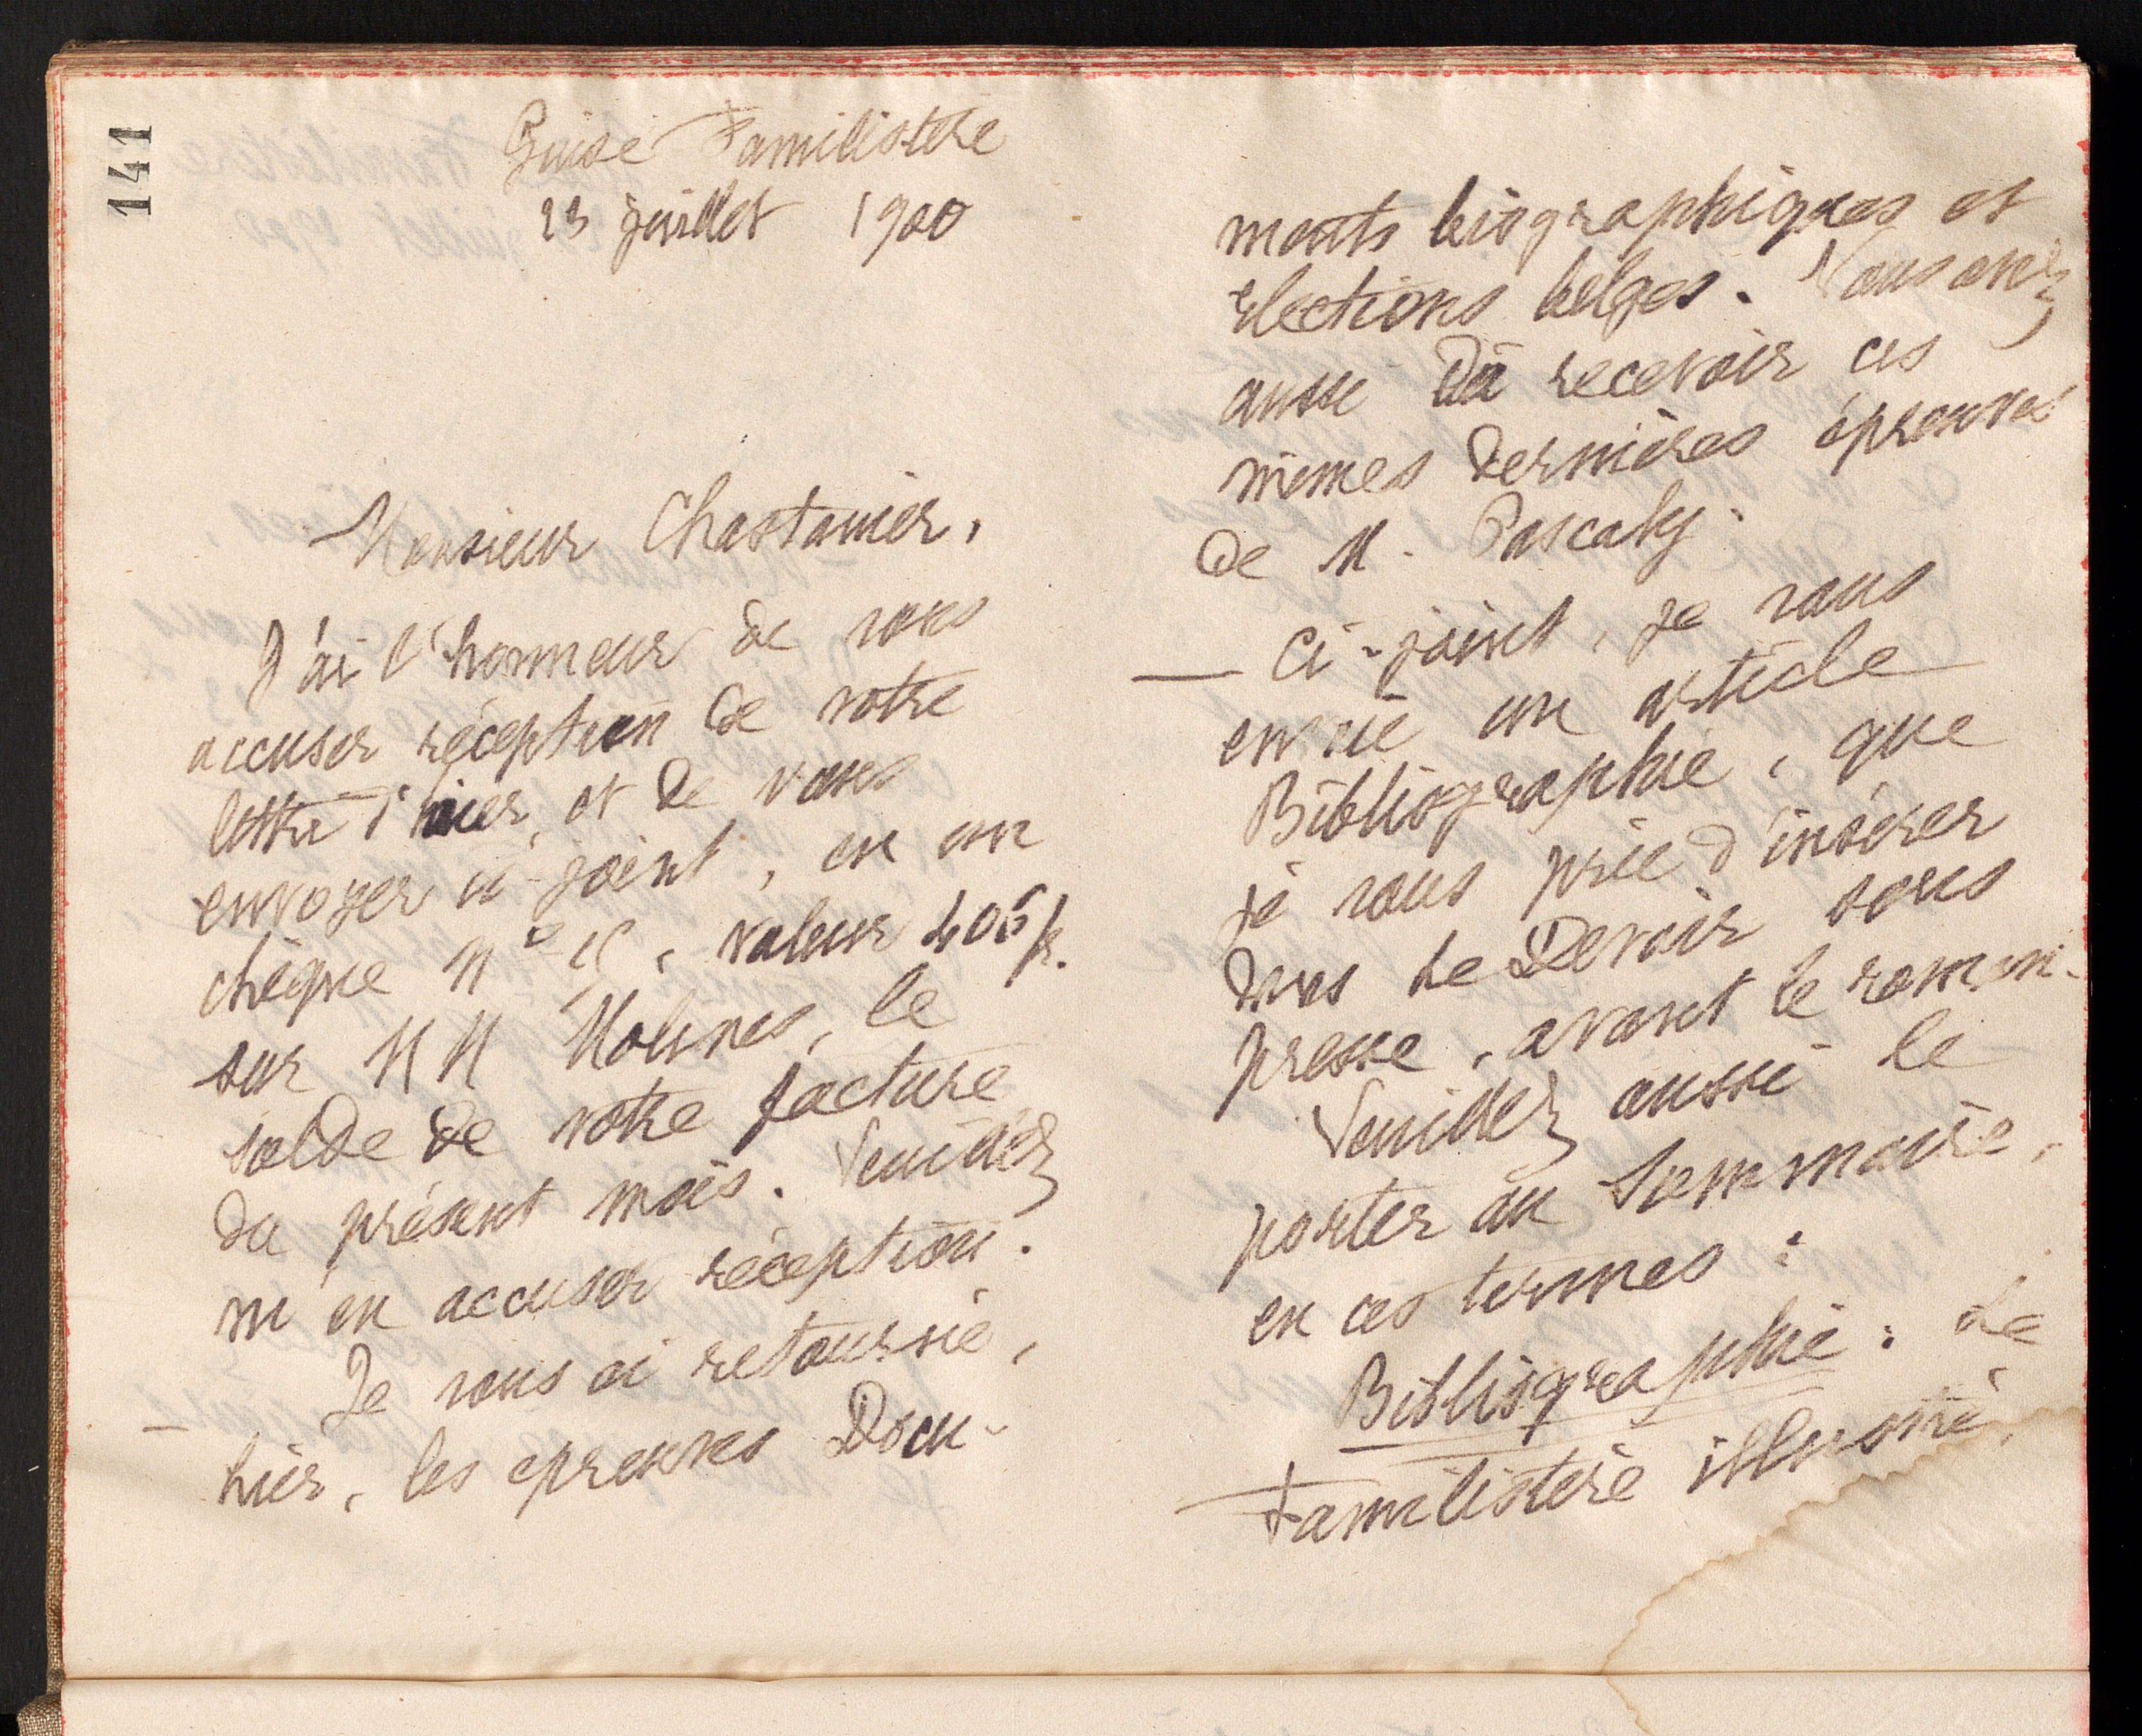 141
Guise Familistère
23 juillet 1900
Monsieur Chastanier,
J'ai l'honneur de vous
accuser réception de votre
lettre d'hier, et de vous
envoyer ci-joint, en un
chèque N°
, valeur 405 fr.
sur MM Molines, le
solde de votre facture
du présent mois. Veuillez
m'en accuser réception.
Je vous ai retourné,
hier, les épreuves Docu-
ments biographiques et
élections belges. Vous avez
aussi dû recevoir ces
mêmes dernières épreuves
de M. Pascaly.
— Ci-joint, je vous
envoie un article
Bibliographie, que
je vous prie d'insérer
dans Le Devoir sous
presse, avant le roman.
Veuillez aussi le
porter au Sommaire,
en ces termes :
Bibliographie : Le
Familistère illustré,